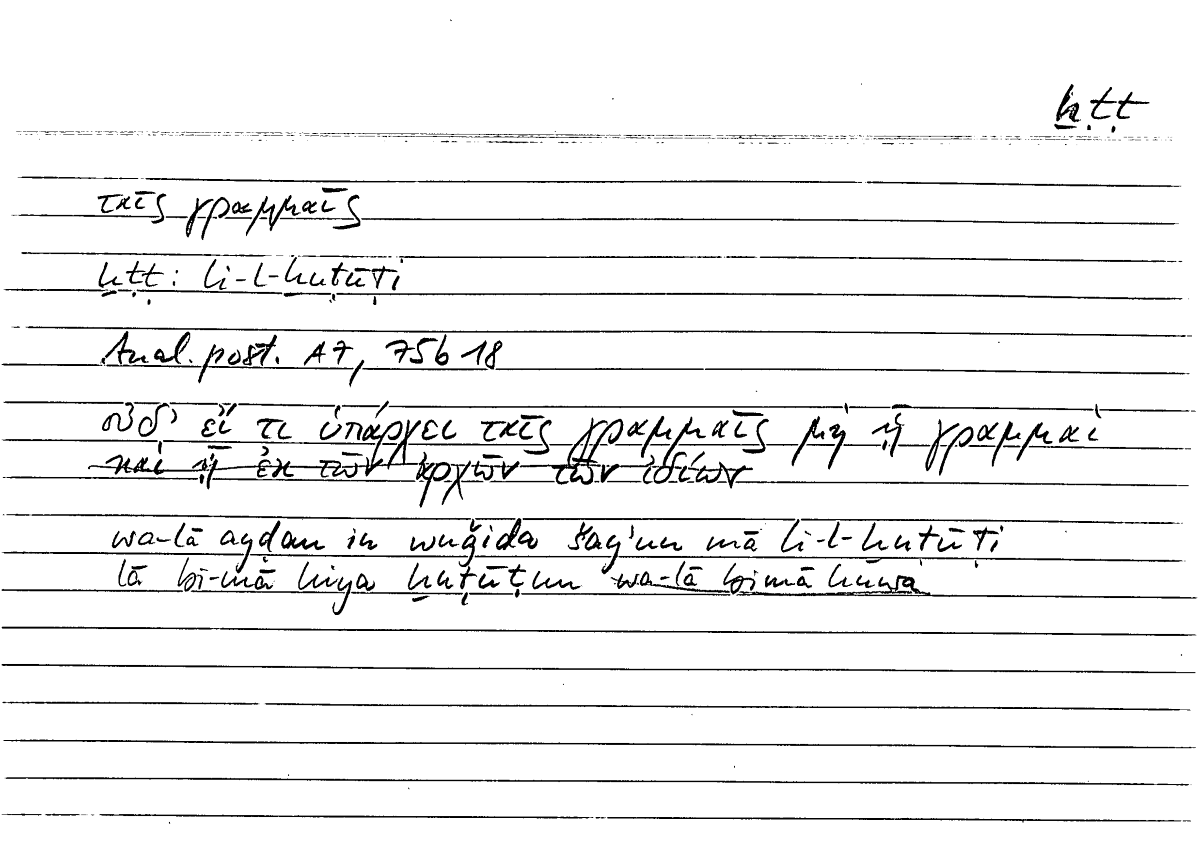 ḫṭṭ
ταῖς γραμμαῖς
ḫṭṭ: li-l-ḫuṭūṭi
Anal. post. A7, 75b18
οὐδ’ εἴ τι ὑπάρχει ταῖς γραμμαῖς μὴ ᾗ γραμμαὶ
καὶ ᾗ ἐκ τῶν ἀρχῶν τῶν ἰδίων
wa-lā ayḍan in wuǧida šayʾun mā li-l-ḫuṭūṭi
lā bi-mā hiya ḫuṭūṭun wa-lā bimā huwa